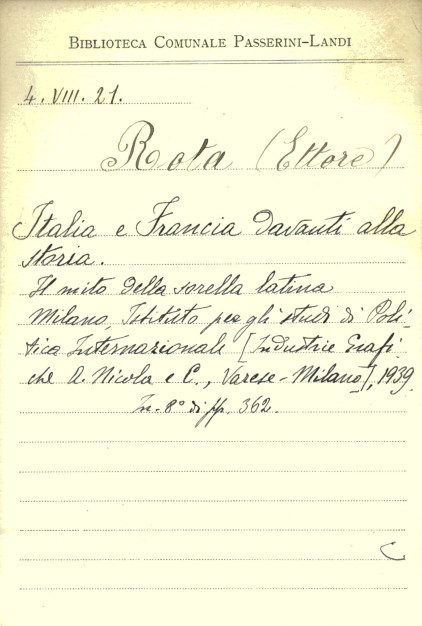 BIBLIOTECA COMUNALE PASSERINI-LANDI
4. VIII. 21.
Rota (Ettore)
Italia e Francia davanti alla
storia.
Il mito della sorella latina
Milano, Istituto per gli studi di Poli-
tica Internazionale [Industrie Grafi-
che A. Nicola e C., Varese-Milano], 1939.
In-8° di pp. 362.
C